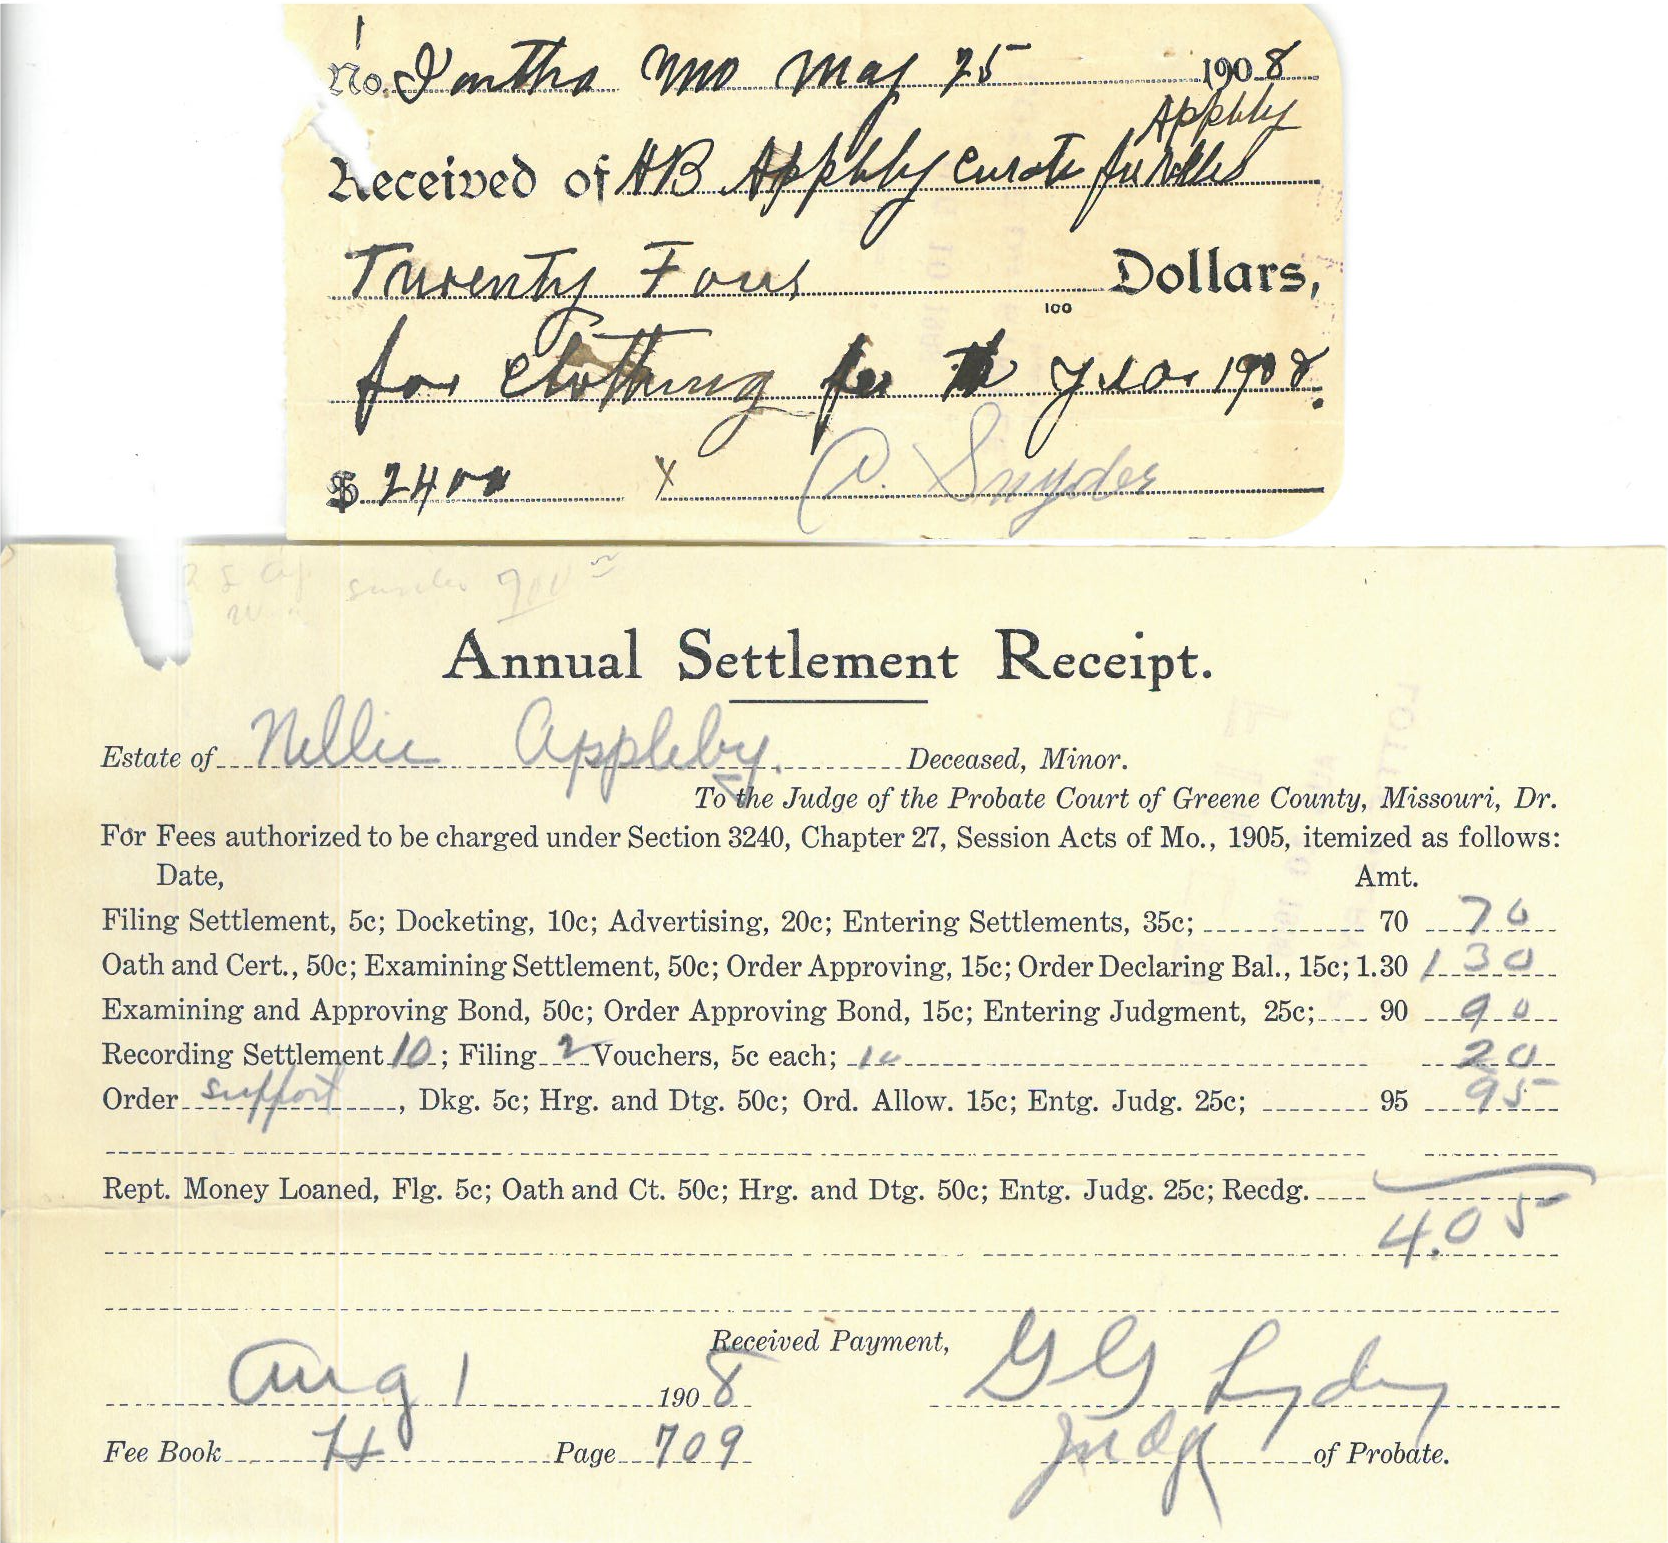 1
No. Iantha Mo May 25 1908
Appbly
Received of HB Appbly Curato for Nellie
Twenty Four Dollars,
100
for Clothing for th year 1908.
$ 24 00 x C. Snyder
Annual Settlement Receipt.
Estate of Nellie Appleby. Deceased, Minor.
To the Judge of the Probate Court of Greene County, Missouri, Dr.
For Fees authorized to be charged under Section 3240, Chapter 27, Session Acts of Mo., 1905, itemized as follows:
Date, Amt.
Filing Settlement, 5c; Docketing, 10c; Advertising, 20c; Entering Settlements, 35c; 70 70
Oath and Cert., 50c; Examining Settlement, 50c; Order Approving, 15c; Order Declaring Bal., 15c; 1.30 1 30
Examining and Approving Bond, 50c; Order Approving Bond, 15c; Entering Judgment, 25c; 90 90
Recording Settlement 10; Filing 2 Vouchers, 5c each; 10 20
Order support, Dkg. 5c; Hrg. and Dtg. 50c; Ord. Allow. 15c; Entg. Judg. 25c; 95 95
Rept. Money Loaned, Flg. 5c; Oath and Ct. 50c; Hrg. and Dtg. 50c; Entg. Judg. 25c; Recdg.
4.05
Received Payment,
Aug 1 1908 G G Lydy
Fee Book H Page 709 Judge of Probate.